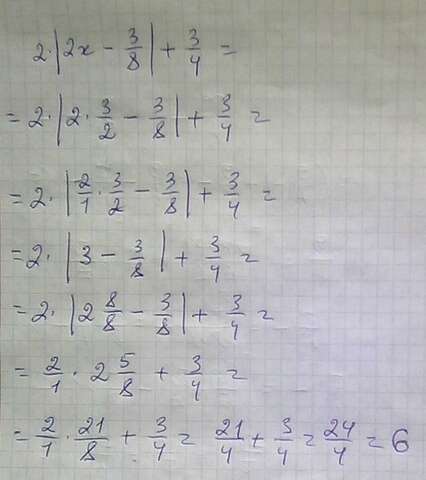 2·|2x − 3/8| + 3/4 =
= 2·|2·3/2 − 3/8| + 3/4 =
= 2·|2/1·3/2 − 3/8| + 3/4 =
= 2·|3 − 3/8| + 3/4 =
= 2·|2 8/8 − 3/8| + 3/4 =
= 2/1 · 2 5/8 + 3/4 =
= 2/1 · 21/8 + 3/4 = 21/4 + 3/4 = 24/4 = 6